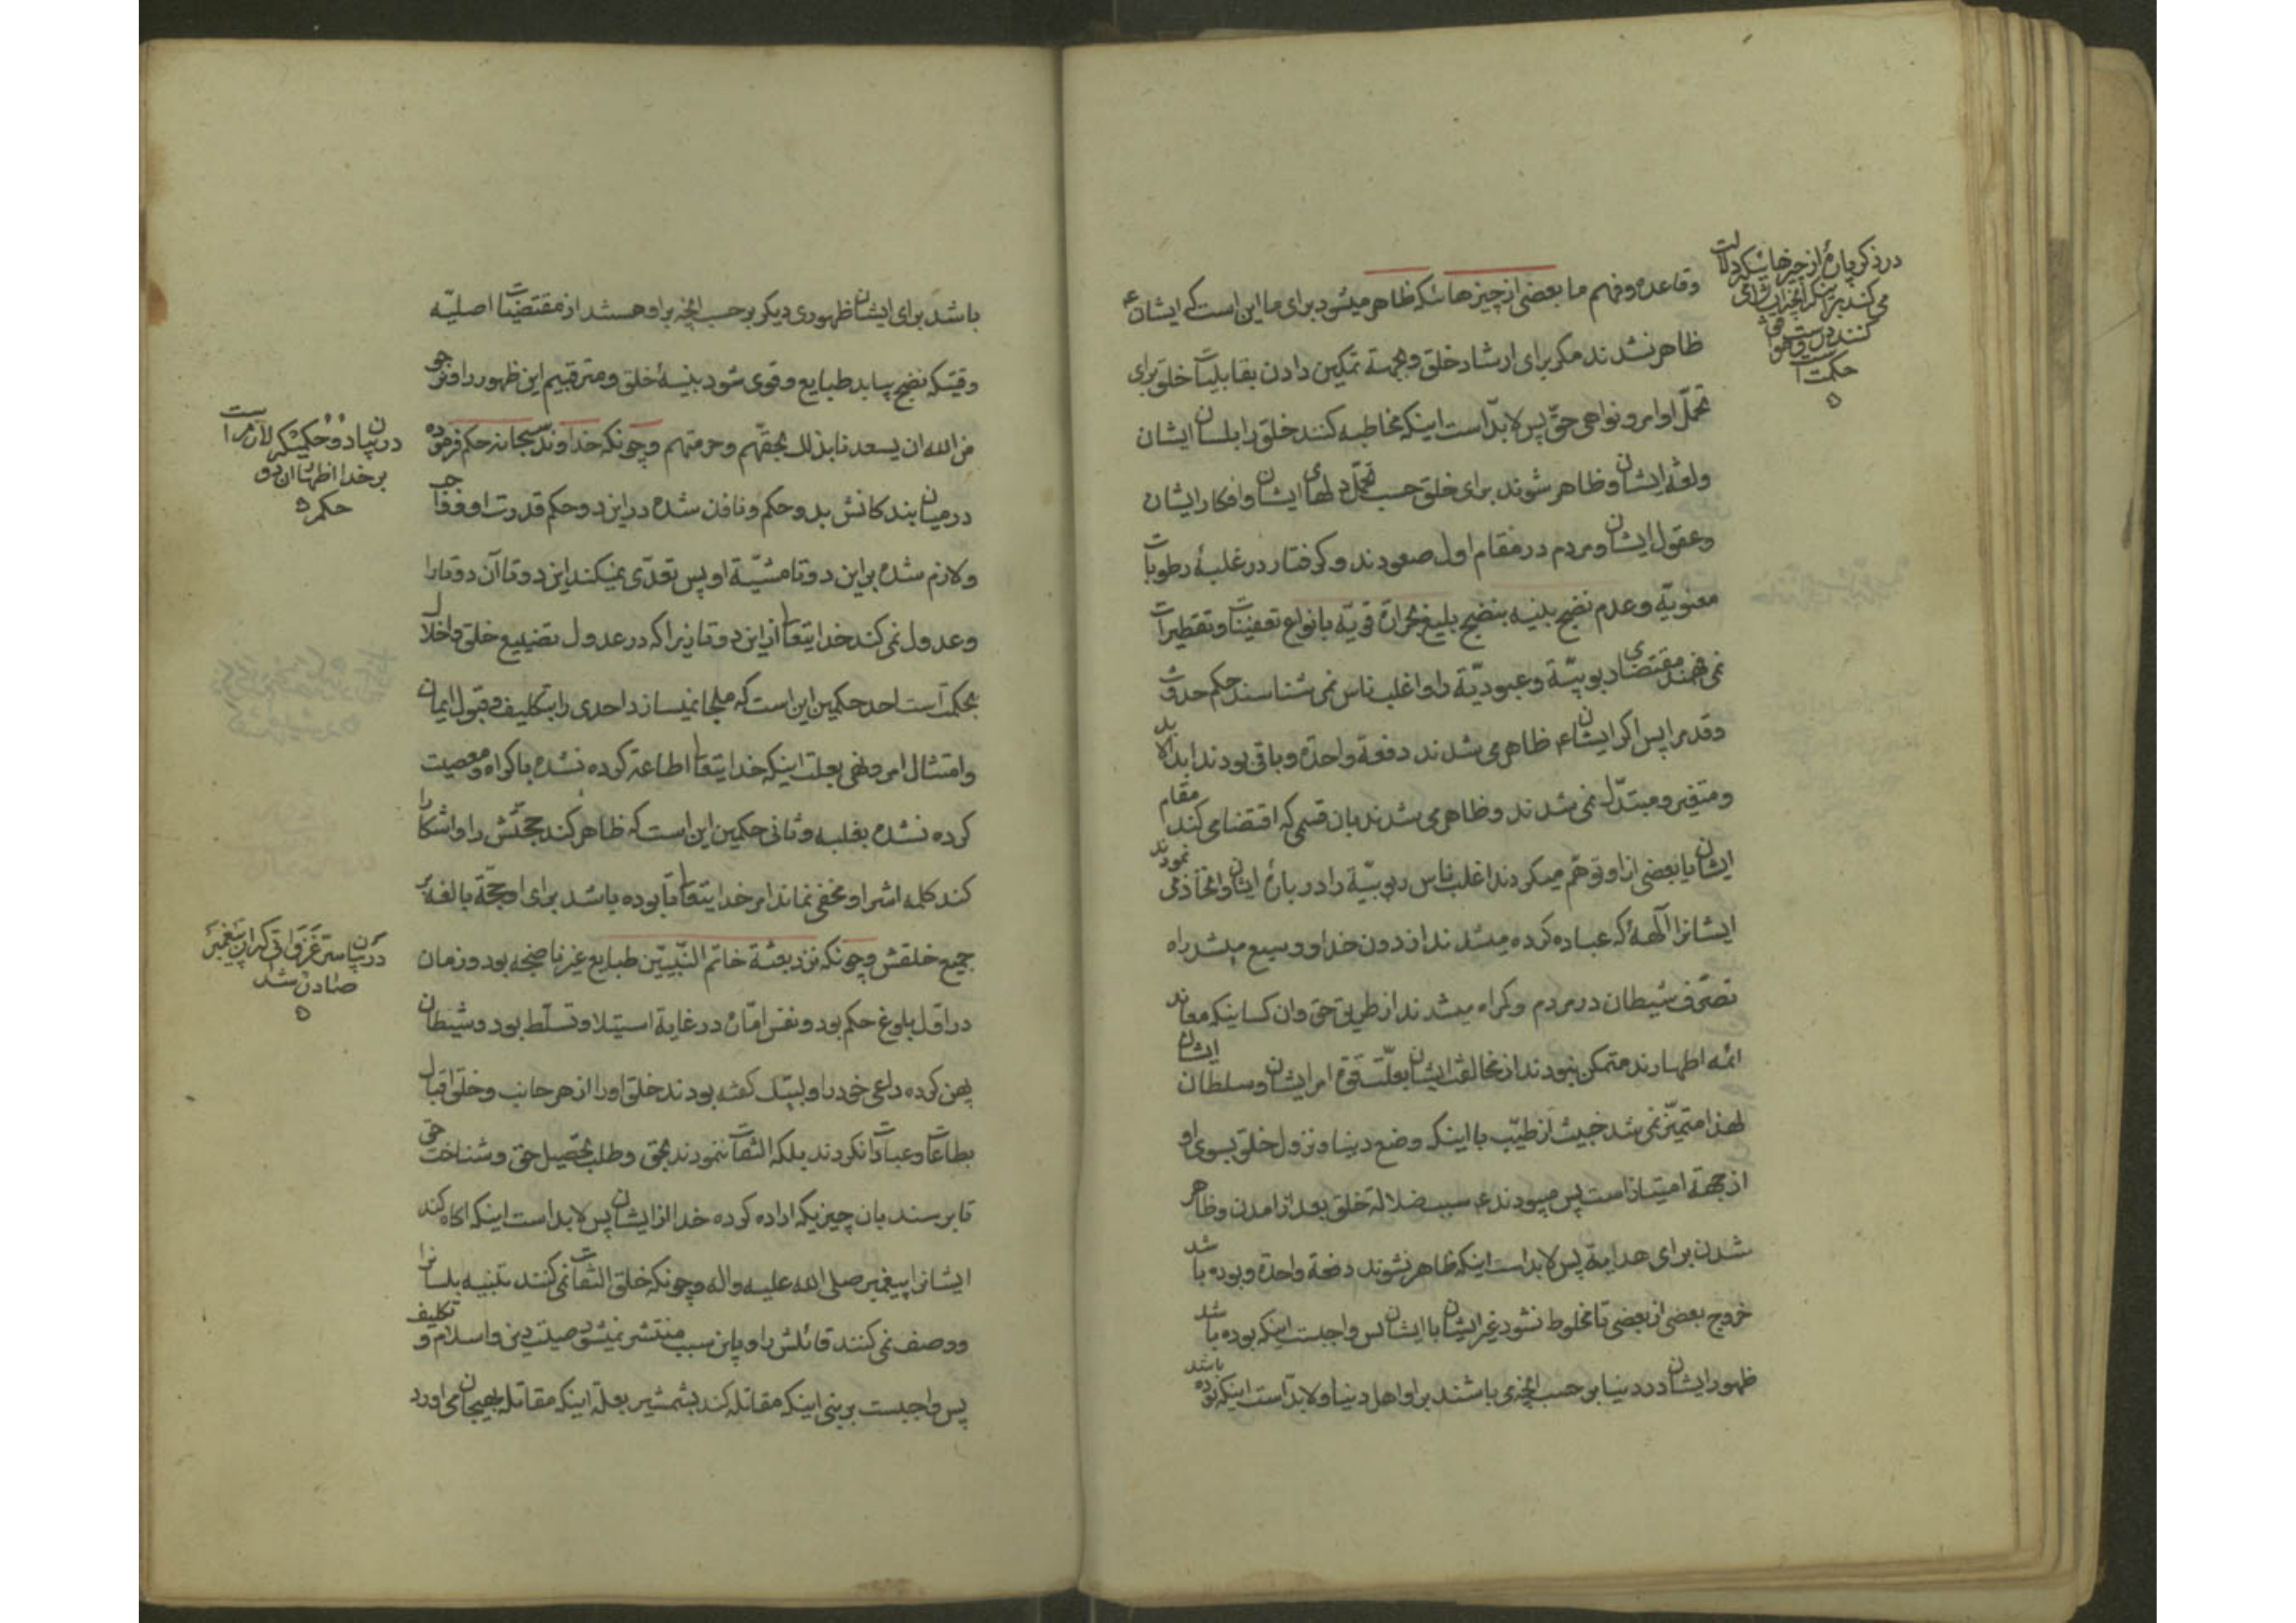 وقاعده وفهم ما بعضی از چیزهائیکه ظاهر میشود برای ما این است که ایشان ع
ظاهر نشدند مکر برای ارشاد خلق و بجهتة تمکین دادن بقابلیات خلق برای
تحمّل اوامر و نواهی حقّ پس لابدّ است اینکه مخاطبه کنند خلق را بلسان ایشان
ولغة ایشان وظاهر شوند برای خلق حسب تحمّل دلهای ایشان وافکار ایشان
وعقول ایشان ومردم در مقام اول صعودند وکرفتار در غلبۀ رطوبات
معنویّه وعدم نضج بلنیه بنضج بلیغ بحرارة قویّه بانواع تعفینات وتقطیرات
نمی فهمند مقتضای ربوبیّة وعبودیّة را واغلب ناس نمی شناسند حکم حدوث
وقدم را پس اکر ایشان ع ظاهر می شدند دفعة واحدة وباقی بودند ابدالابد
ومتغیر ومبتدّل نمی شدند وظاهر می شدند بان قسمی که اقتضا می کند مقام
ایشان یا بعضی از او توهّم میکردند اغلب ناس ربوبیّة را در بارۀ ایشان واتخاذ می نمودند
ایشانرا آلهۀ که عباده کرده میشدند از دون خدا ووسیع میشد راه
تصرّف شیطان در مردم وکمراه میشدند از طریق حق وان کسانیکه معاند
ائمه اطهارند متمکن نبودند از مخالفت ایشان بعلّت قوة امر ایشان وسلطان ایشان
لهذا متمیّز نمی شد خبیث از طیّب با اینکه وضع دنیا ونزول خلق بسوی او
از جهة امتیاز است پس میبودند ع سبب ضلالة خلق بعد از امدن وظاهر
شدن برای هدایة پس لابد است اینکه ظاهر نشوند دفعة واحدة وبوده باشد
خروج بعضی از بعضی تا مخلوط نشود غیر ایشان با ایشان پس واجبست اینکه بوده باشد
ظهور ایشان در دنیا بر حسب انچه می باشند براو اهل دنیا ولابدّ است اینکه بوده باشد
در ذکر پارۀ از چیزهائیکه دلالت
می کند بر اینکه انچه ایشان می
کنند درست وموافق
حکمت است
باشد برای ایشان ظهوری دیکر بر حسب انچه براو هستند از مقتضیات اصلیّه
وقتیکه نضج بیابد طبایع وقوی شود بنیۀ خلق ومترقبیم این ظهور را ونرجو
من الله ان یسعدنا بذلك بحقّهم وحرمتهم وچونکه خداوند سبحانه حکم فرموده
در میان بندکانش بدو حکم ونافذ شده در این دو حکم قدرت او
ولازم شده براین دوتا مشیّة او پس تعدّی نمیکند این دوتا آن دوتا را
وعدول نمی کند خدایتعالی از این دوتا زیرا که در عدول تضییع خلق واخلال
بحکمت است احد حکمین این است که ملجا نمیسازد احدی را بتکلیف وقبول ایمان
وامتثال امر ونهی بعلت اینکه خدایتعالی اطاعة کرده نشده باکراه ومعصیت
کرده نشده بغلبه وثانی حکمین این است که ظاهر کند حجّتش را واشکارا
کند کلمه اش را ومخفی نماند امر خدایتعالی تا بوده باشد برای او حجّة بالغه بر
جمیع خلقش وچونکه نزد بعثة خاتم النّبیّین طبایع غیر ناضجه بود وزمان
در اوّل بلوغ حکم بود ونفس امّاره در غایة استیلا وتسلّط بود وشیطان
پهن کرده داعی خود را ولبیّك کفته بودند خلق اورا از هر جانب وخلق اقبال
بطاعات وعبادات نکردند بلکه التفات ننمودند بحق وطلب تحصیل حق وشناخت حق
تا برسند بان چیزیکه اراده کرده خدا از ایشان پس لابد است اینکه اکاه کند
ایشانرا پیغمبر صلی الله علیه واله وچونکه خلق التفات نمی کنند بتنبیه بلسان را
ووصف نمی کنند قائلش را وباین سبب منتشر نمیشود صیت دین واسلام و تکلیف
پس واجبست بر نبی اینکه مقاتله کند بشمشیر بعلّة اینکه مقاتله بهیجان می اورد
در بیان دو حکمیکه لازم است
بر خدا اظهار ان دو
حکم
در بیان سرّ غزواتی که از پیغمبر
صادر شد